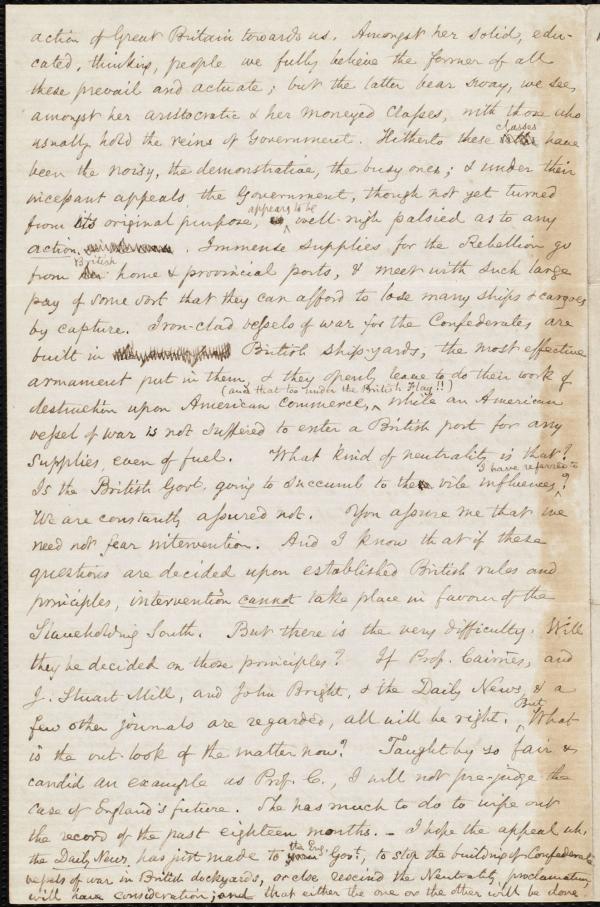 action of Great Britain towards us. Amongst her solid, edu-
cated, thinking, people we fully believe the former of all
these prevail and actuate; but the latter bear sway, we see,
amongst her aristocratic & her moneyed classes, with those who
usually hold the reins of Government. Hitherto these classes have
been the noisy, the demonstrative, the busy ones; & under their
incessant appeals the Government, though not yet turned
from its original purpose, appears to be well-nigh palsied as to any
action. Immense supplies for the Rebellion go
from British home & provincial ports, & meet with such large
pay of some sort that they can afford to lose many ships & cargoes
by capture. Iron-clad vessels of war for the Confederates are
built in British ship-yards, the most effective
armament put in them, & they openly leave to do their work of
destruction upon American commerce, (and that too under the British Flag!!) while an American
vessel of war is not suffered to enter a British port for any
supplies, even of fuel. What kind of neutrality is that?
Is the British Govt. going to succumb to the vile influences I have referred to?
We are constantly assured not. You assure me that we
need not fear intervention. And I know that if these
questions are decided upon established British rules and
principles, intervention cannot take place in favour of the
Slaveholding South. But there is the very difficulty. Will
they be decided on those principles? If Prof. Cairnes, and
J. Stuart Mill, and John Bright, & the Daily News, & a
few other journals are regarded, all will be right. But What
is the out-look of the matter now? Taught by so fair &
candid an example as Prof. C., I will not pre-judge the
case of England's future. She has much to do to wipe out
the record of the past eighteen months. – I hope the appeal wh.
the Daily News, has just made to the Eng. Govt., to stop the building of Confederate
vessels of war in British dockyards, or else rescind the Neutrality proclamation,
will have consideration; and that either the one or the other will be done.